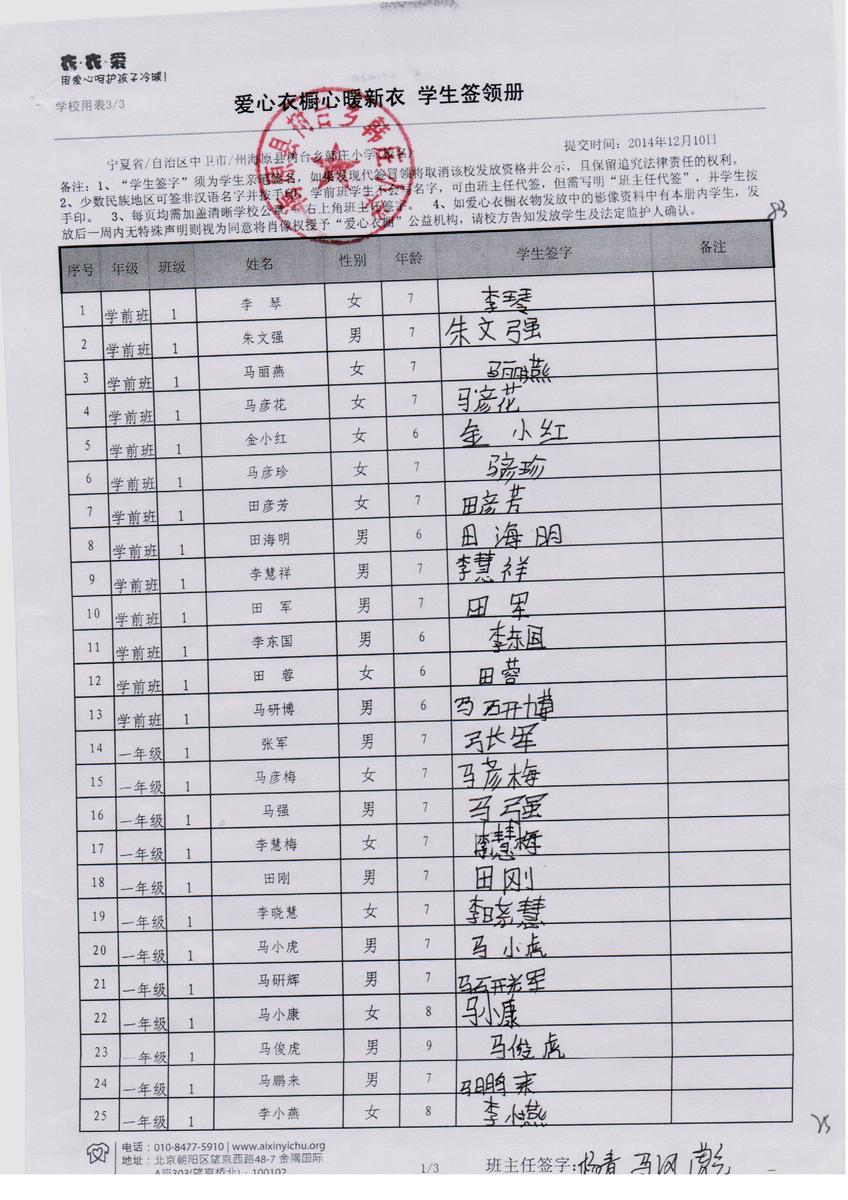 衣·衣·爱
用爱心呵护孩子冷暖!
学校用表3/3
爱心衣橱心暖新衣 学生签领册
提交时间: 2014年12月10日
宁夏省/自治区中卫市/州海原县树台乡韩庄小学
备注: 1、“学生签字”须为学生亲笔签名, 如果发现代签冒领将取消该校发放资格并公示, 且保留追究法律责任的权利。
2、少数民族地区可签非汉语名字并按手印, 学前班学生不会写名字, 可由班主任代签, 但需写明“班主任代签”, 并学生按
手印。 3、每页均需加盖清晰学校公章, 右上角班主任签字。 4、如爱心衣橱衣物发放中的影像资料中有本册内学生, 发
放后一周内无特殊声明则视为同意将肖像权授予“爱心衣橱”公益机构, 请校方告知发放学生及法定监护人确认。
83
序号 年级 班级 姓名 性别 年龄 学生签字 备注
1 学前班 1 李 琴 女 7 李琴
2 学前班 1 朱文强 男 7 朱文强
3 学前班 1 马丽燕 女 7 马丽燕
4 学前班 1 马彦花 女 7 马彦花
5 学前班 1 金小红 女 6 金 小红
6 学前班 1 马彦珍 女 7 马彦珍
7 学前班 1 田彦芳 女 7 田彦芳
8 学前班 1 田海明 男 6 田 海 明
9 学前班 1 李慧祥 男 7 李慧祥
10 学前班 1 田 军 男 7 田 军
11 学前班 1 李东国 男 6 李东国
12 学前班 1 田 蓉 女 6 田蓉
13 学前班 1 马研博 男 6 马研博
14 一年级 1 张军 男 7 张军
15 一年级 1 马彦梅 女 7 马彦梅
16 一年级 1 马强 男 7 马强
17 一年级 1 李慧梅 女 7 李慧梅
18 一年级 1 田刚 男 7 田刚
19 一年级 1 李晓慧 女 7 李晓慧
20 一年级 1 马小虎 男 7 马 小虎
21 一年级 1 马研辉 男 7 马研辉
22 一年级 1 马小康 女 8 马小康
23 一年级 1 马俊虎 男 9 马俊虎
24 一年级 1 马鹏来 男 7 马鹏来
25 一年级 1 李小燕 女 8 李小燕
电话: 010-8477-5910 | www.aixinyichu.org
地址: 北京朝阳区望京西路48-7 金隅国际
A座303(望京桥北) · 100102
1/3
班主任签字: 杨青